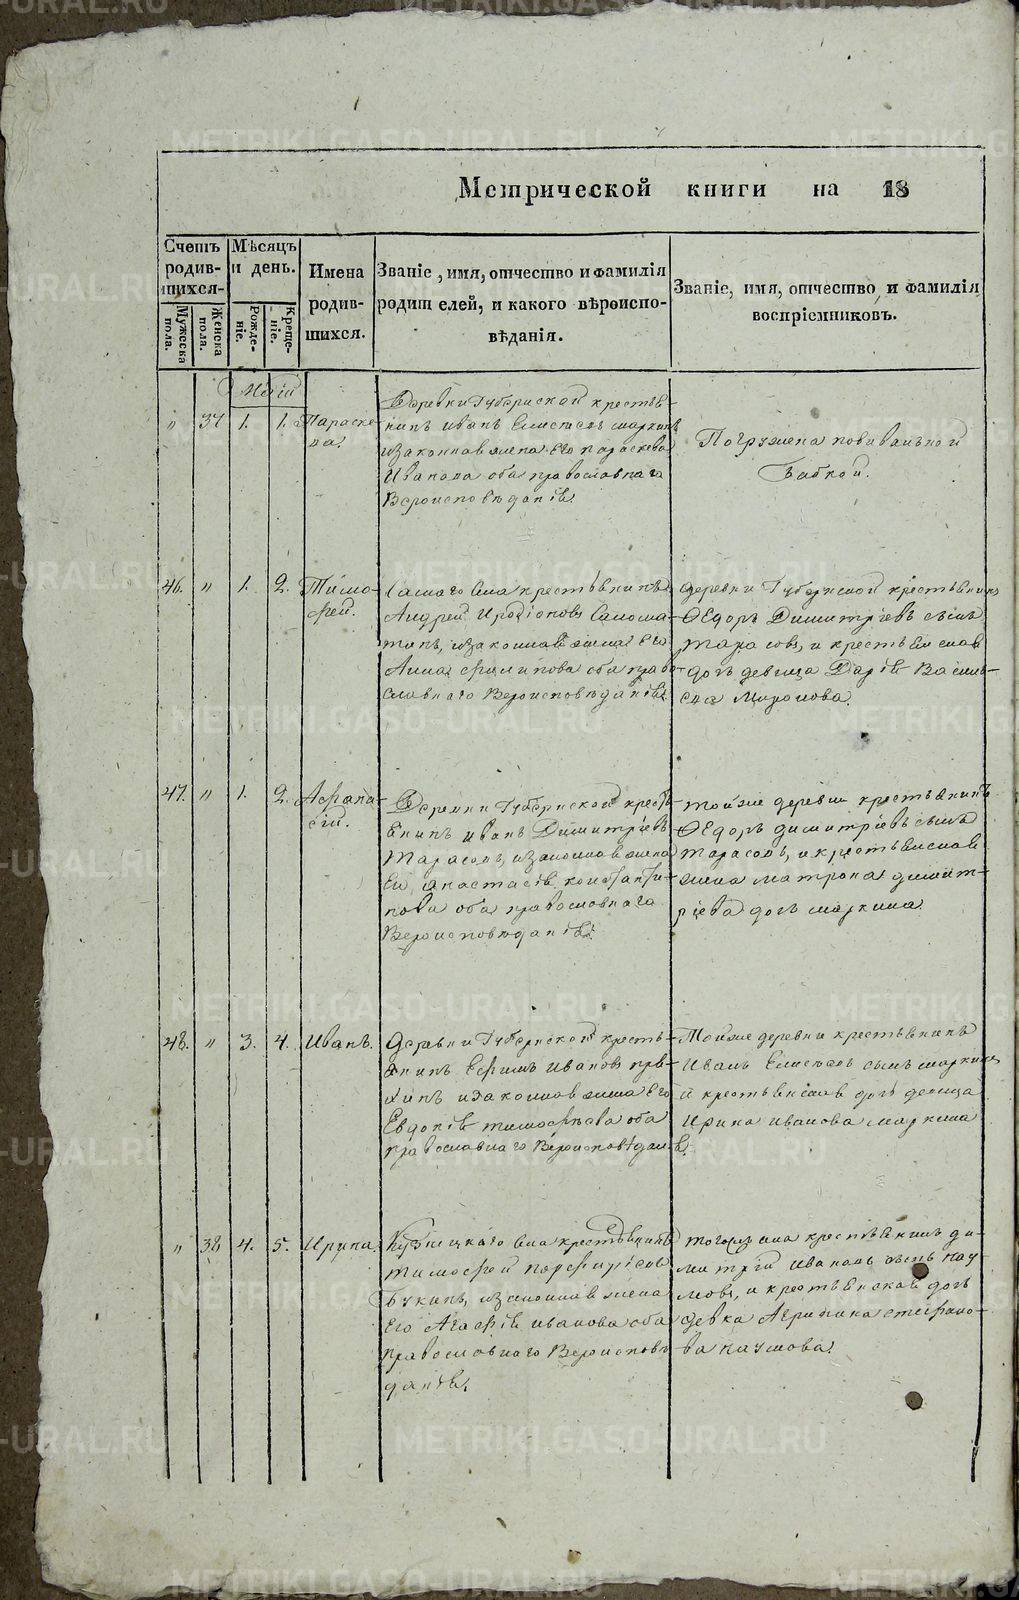 Метрической книги на 18
Счетъ
родив-
шихся.
Мѣсяцъ
и день.
Имена
родив-
шихся.
Званіе, имя, отчество и фамилія
родителей, и какого вѣроиспо-
вѣданія.
Званіе, имя, отчество, и фамилія
воспріемниковъ.
Мужеска
пола.
Женска
пола.
Рожде-
ніе.
Креще-
ніе.
Маій
" 37 1. 1. Параске-
ва.
Деревни Губернской крестья-
нинъ Иванъ Елисеевъ Маркинъ
и законная жена его Параскева
Иванова оба православнаго
Вероисповѣданія.
Погружена повивальной
бабкой.
46. " 1. 2. Тимо-
фей.
Самаго села крестьянинъ
Андрей Иродіоновъ Салома-
тинъ, и законная жена его
Анна Филипова оба право-
славнаго Вероисповѣданія.
Деревни Губернской крестьянинъ
Ѳедоръ Димитріевъ сынъ
Тарасовъ, и крестьянская
дочь девица Дарія Василь-
ева Миронова.
47. " 1. 2. Афана-
сій.
Деревни Губернской кресть-
янинъ Иванъ Димитріевъ
Тарасовъ, и законная жена
его Анастасія Константи-
нова оба православнаго
Вероисповѣданія.
Тойже деревни крестьянинъ
Ѳедоръ Димитріевъ сынъ
Тарасовъ, и крестьянская
жена Матрона Димит-
ріева дочь Маркина.
48. " 3. 4. Иванъ.
Деревни Губернской кресть-
янинъ Ефимъ Ивановъ
и законная жена его
Евдокія Тимофѣева оба
православнаго Вероисповѣданія.
Тойже деревни крестьянинъ
Иванъ Елисеевъ сынъ Маркинъ
и крестьянская дочь девица
Ирина Иванова Маркина
" 38 4. 5. Ирина.
села крестьянинъ
Тимофей Порфирьевъ
Букинъ, и законная жена
его Агафія Иванова оба
православнаго Вероисповѣ-
данія.
Тогожъ села крестьянинъ Ди-
митрій Ивановъ сынъ Нау-
мовъ, и крестьянская дочь
девка Агрипина Стефано-
ва Наумова.
METRIKI.GASO-URAL.RU